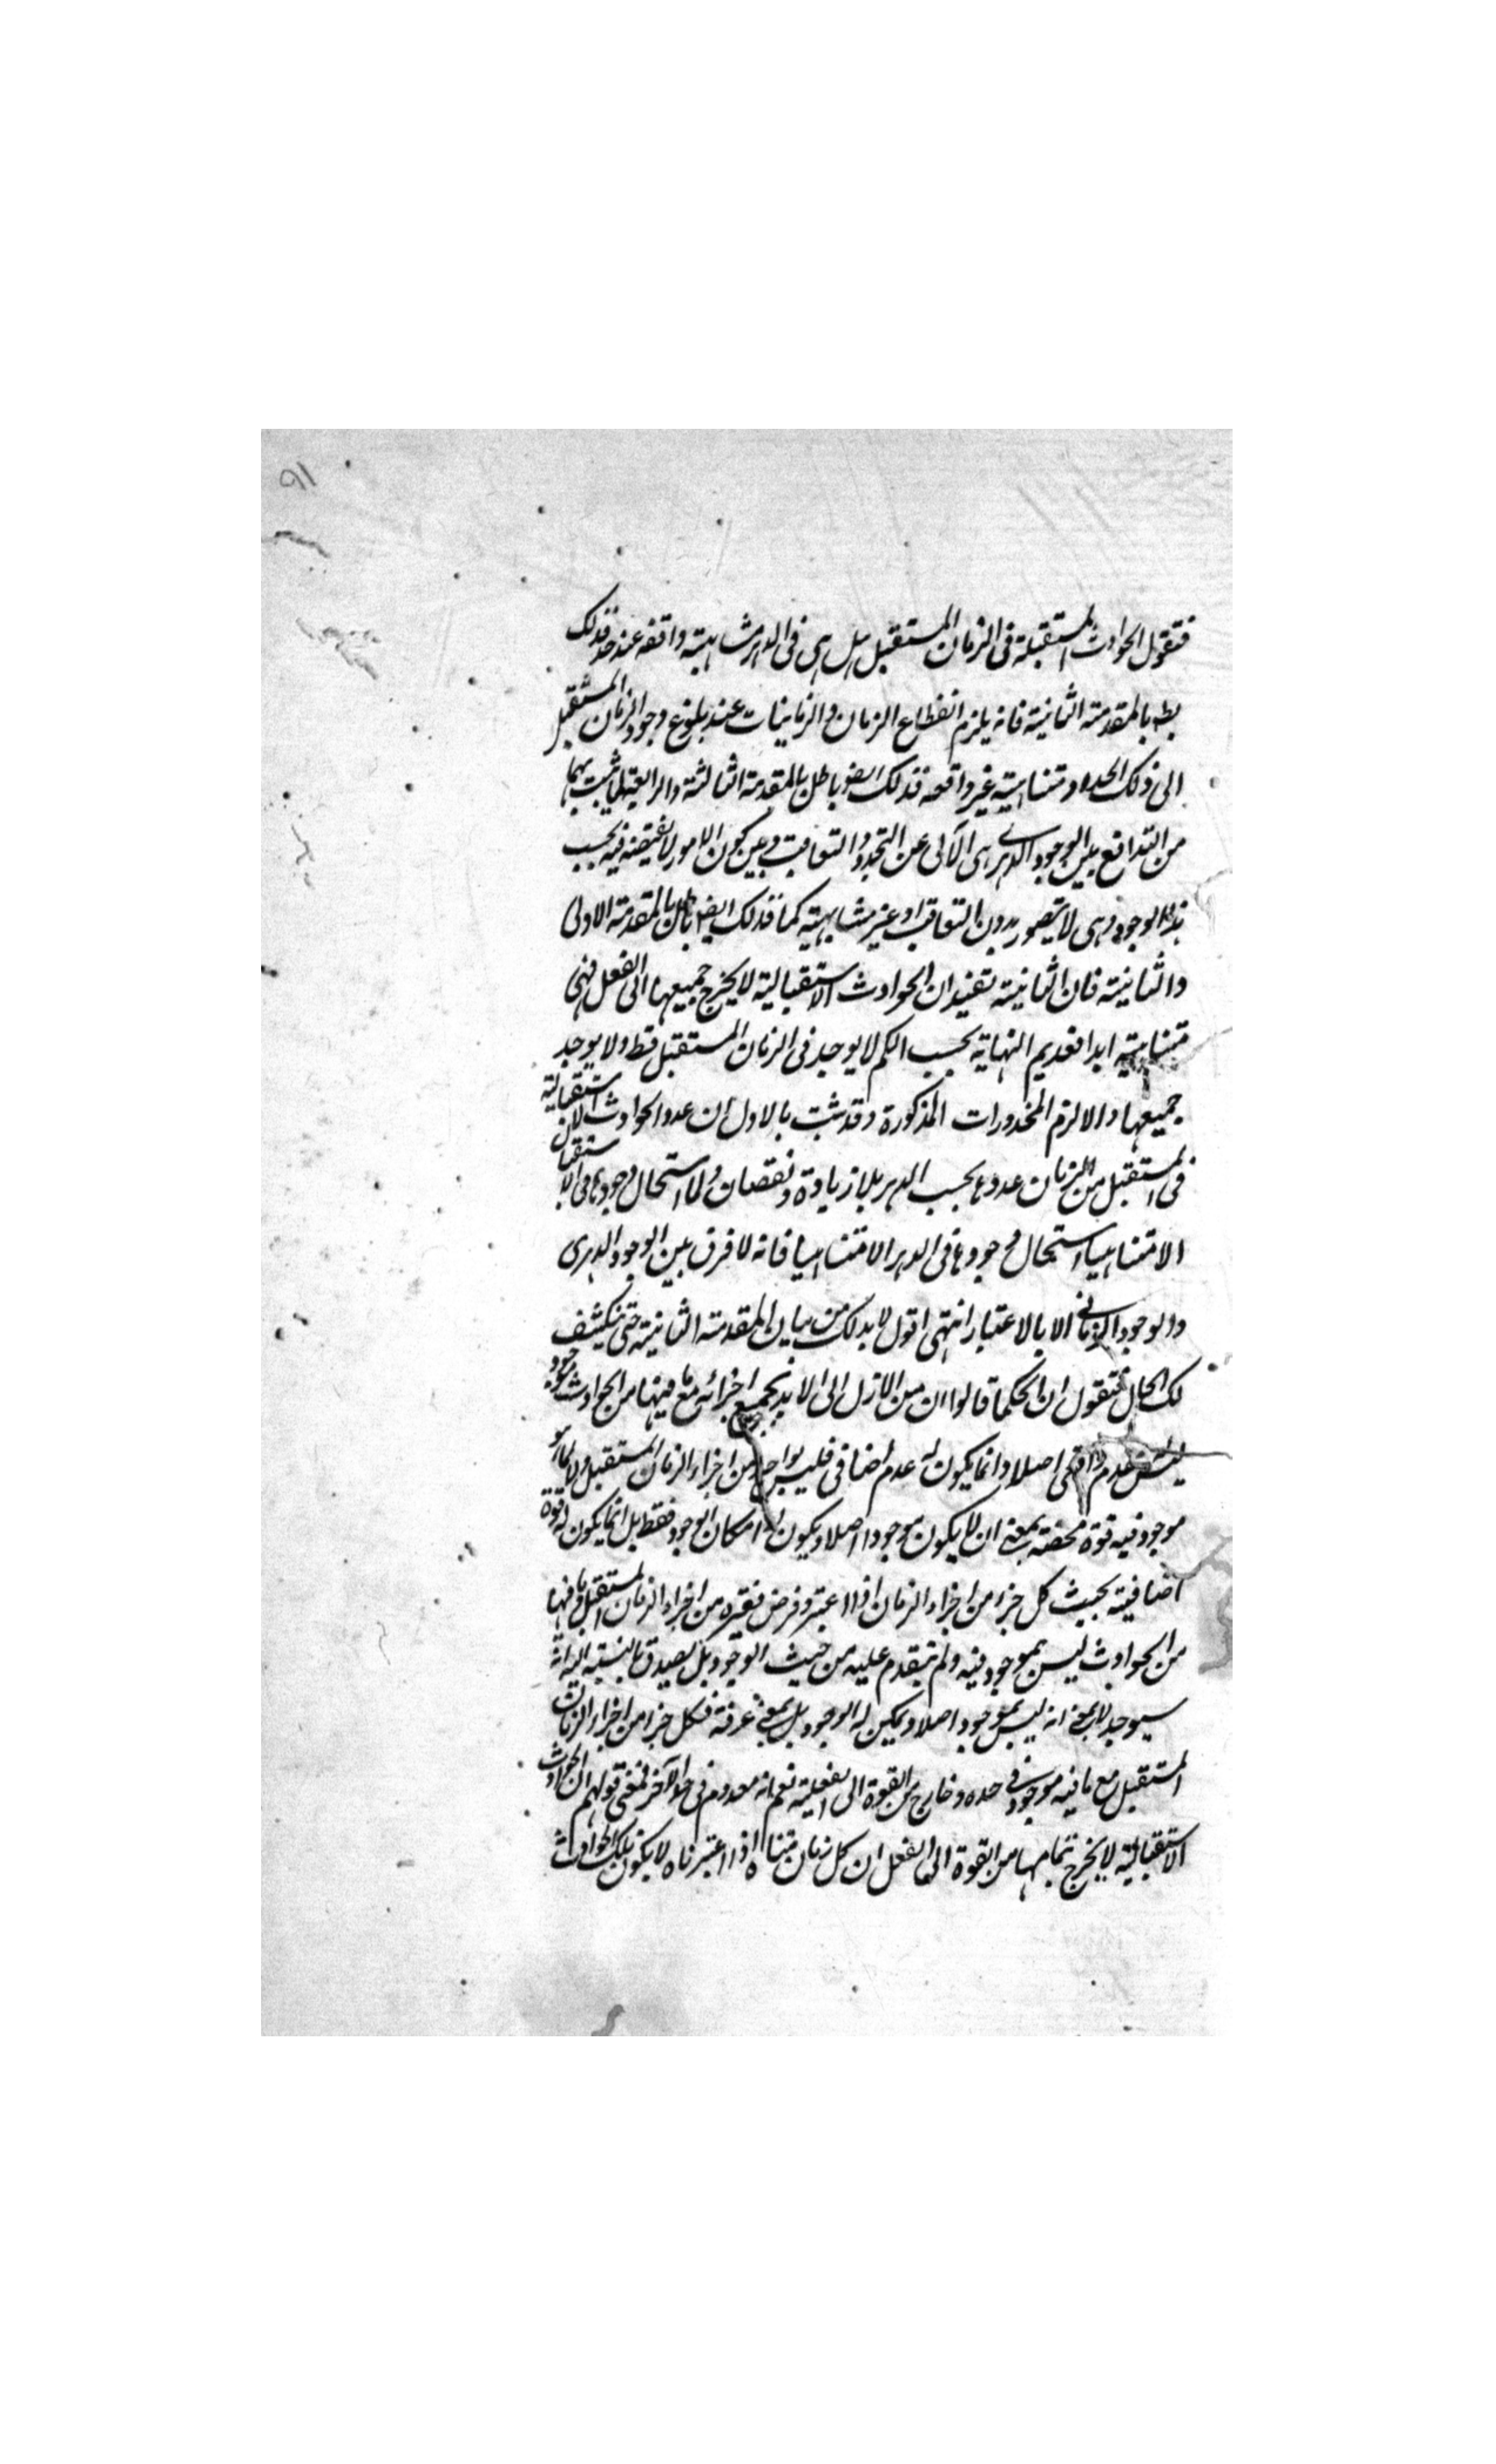 ٩١
فنقول الحوادث المستقبلة فى الزمان المستقبل هل هى فى الدهر متناهية واقفه عند حد فذلك
بط بالمقدمة الثانية فانه يلزم انقطاع الزمان والزمانيات عند بلوغ وجود الزمان المستقبل
الى ذلك الحد او متناهية غير واقعه فذلك ايضا باطل بالمقدمة الثالثة والرابعة لما ثبت بهما
من التدافع بين الوجود الدهرى الآبى عن التجدد والتعاقب وبين كون الامور لا يقتضيه بحسب
هذا الوجود وهى لا يتصور بدون التعاقب او غير متناهية كما فذلك ايضا باطل بالمقدمة الاولى
والثانية فان الثانية تفيد ان الحوادث الاستقبالية لا يخرج جميعها الى الفعل فهى
متناهية ابدا فعديم النهاية بحسب الكم لا يوجد فى الزمان المستقبل قط ولا يوجد
جميعها والا لزم المحذورات المذكورة وقد ثبت بالاول ان عدد الحوادث الاستقبالية لان
فى المستقبل من الزمان عددها بحسب الدهر بلا زيادة ونقصان ولما استحال وجودها فى الاستقبال
الا متناهيا استحال وجودها فى الدهر الا متناهيا فانه لا فرق بين الوجود الدهرى
والوجود الزمانى الا بالاعتبار انتهى اقول لا بد لك من بيان المقدمة الثانية حتى ينكشف
لك الحال فنقول ان الحكما قالوا ان من الازل الى الابد بجميع اجزائه مع ما فيها من الحوادث موجود
ليس عدم واقعى اصلا وانما يكون له عدم اضافى فليس بواحد من اجزاء الزمان المستقبل ولا لما هو
موجود فيه قوة محضة بمعنى ان لا يكون موجودا اصلا ويكون له امكان الوجود فقط بل انما يكون له قوة
اضافية بحيث كل جزء من اجزاء الزمان اذا اعتبر وفرض فغيره من اجزاء الزمان المستقبل وما فيها
من الحوادث ليس بموجود فيه ولم يتقدم عليه من حيث الوجود بل يصدق بالنسبة اليه انه
سيوجد لا بمعنى انه ليس بموجود اصلا ويمكن له الوجود بل بمعنى عرفته فكل جزء من اجزاء الزمان
المستقبل مع ما فيه موجود فى حده وخارج من القوة الى الفعلية نعم انه معدوم فى حد الآخر فمعنى قولهم ان الحوادث
الاستقبالية لا يخرج بتمامها من القوة الى الفعل ان كل زمان متناه اذا اعتبرناه لا يكون تلك الحوادث